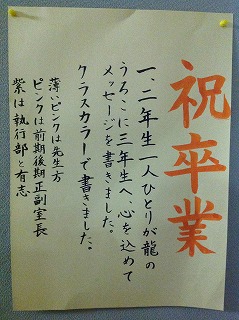 祝卒業
一、二年生一人ひとりが龍の
うろこに三年生へ、心を込めて
メッセージを書きました。
クラスカラーで書きました。
薄いピンクは先生方
ピンクは前期後期正副室長
紫は執行部と有志